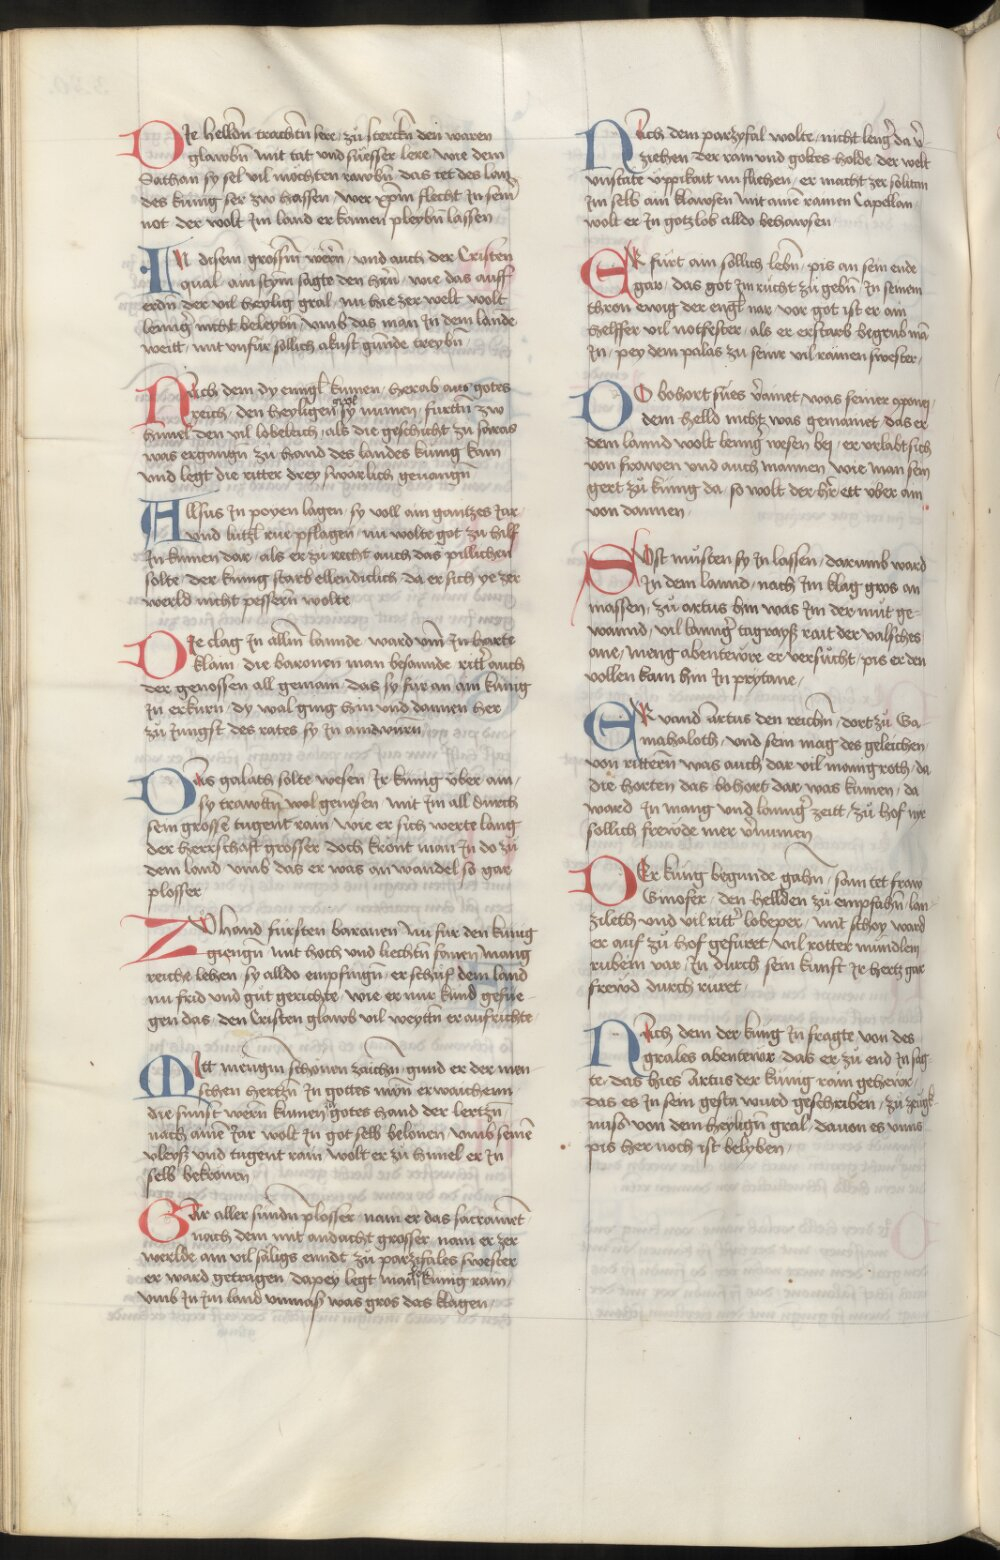 DJe helldn̄ trachtn̄ sere / zů sterckn̄ den waren
glawbn̄ mit tat vnd süesser lere / wie dem
Sathan sy sel vil möchten rawbn̄ / das tet des lan
des kunig ser zw hassen / wer xp̄m flecht Jn sein̄
not der wolt Jm land er kainen pleybn̄ lassen
IN disem grossm̄ wērn̄ / vnd auch der Cristen
qual / ain stym̄ sagte den hrn̄ / wie das auff
erdn̄ der vil heylig gral / nu hie zer welt wolt
lennger nicht beleybn̄ / vmb das man Jn dem lannde
weitt / mit vnfur sollich akust gunde treybn̄ /
NAch dem dy enngl̄ kumen / herab aus gotes
reich / den heyligen gral sy numen / furttn̄ zw
himel den vil lobeleich / als die geschicht zu saras
was ergangn̄ zu hand des landes kunig kam
vnd legt die ritter drey swarlich geuangn̄
ALlsus Jn poyen lagen / sy voll ain gantzes Jar /
vnd lützl̄ rüe pflagen / nu wolte got zu hilf
Jn kumen dar / als er zu recht auch das pillichen
solte / der kunig starb ellendiclich / da er sich ye zer
werld nicht pessern̄ wolte
DJe clag Jn allm̄ lannde / ward vm̄ Jn harte
klain / die baronen man besannde / ritt̄ auch
der genossen all gemain / das sy fur an ain kunig
Jn erkurn / dy wal ging hin vnd dannen her
zů Jungst des rates sy Jn aindwurn̄ /
DAs galath solte wesen / Jr kunig über ain /
sy trawttn̄ wol genesen / mit Jm all durch
sein grosse tugent rain / wie er sich werte lang
der herrschaft grosser / doch krönt man Jn do zu
dem land / vmb das er was an wandel so gar
plosser
ZV hand fürsten baronen / Nu für den kunig
giengn̄ / mit hoch vnd liechtn̄ synen mang
reiche lehen / sy alldo empfingn̄ / er schuf dem land
nu frid vnd gůt gerichte / wie er nur kund gefüe-
gen das / den Cristen glawb vil weyttn̄ er aufrichte /
MItt mengm̄ schonen zaichn̄ / gund er der men-
schen hertzn̄ / Jn gottes mÿn̄ erwaichenn /
die sunst wern̄ kumen / gotes hand der lertzn̄
nach aine Jar wolt Jn got selb belonen / vmb seinē
vleyss vnd tugent rain / wolt er zu himel er Jn
selb bekronen
GAr aller sundn̄ plosser / nam er das sacramēt
nach dem mit andacht grosser / nam er zer
werlde ain vil saligs enndt / zů parzifales swester
er ward getragen / dapey legt man kunig rain /
vmb Jn Jm land vnmass was gros das klagen /
NAch dem parzyfal wolte / nicht lenḡ da v̄
ziehen / der rain vnd gottes holde / der welt
vnstate üppikait nu fliehen / er macht zer solitan
Jm selb ain klawsen / mit aine rainen Capellan
wolt er Jn gotz lob alldo behawsen /
ER fürt ain sollich lebn̄ / pis an sein ende
gar / das got Jm rücht zů gebn̄ / Jn seinem
thron ewig der engl̄ nar / vor got ist er ain
helffer vil notfester / als er erstarb begrub mā
Jn / pey dem palas zu seiner vil rainen swester /
DO bohort sües v̄ainet / was seiner opony
dem helld nicht was gemainet / das er
dem lannd wolt lennḡ wesen bey / er vrlabt sich
von frawen vnd auch mannen / wie man sein
gert zů kunig da / so wolt der h̄r ett vber ain
von dannen /
SVst můsten sy Jn lassen / darumb ward
Jn dem lannd / nach Jm klag gros an
massen / zů artus hin was Jm der můt ge-
wannd / vil lannḡ tagrayss rait der valsches
ane / meng abentewre er versůcht / pis er den
vollen kam hin Jn preytane /
ER vand Artus den reichn̄ / dort zů Ga-
mahaloth / vnd sein mag des geleichen
von rittern was auch dar vil manig roth / da
die horten das bohort dar was kumen / da
ward Jn mang vnd lannḡ zeitt / zů hof nye
sollich frewde mer v̄numen
DEr kung begunde gahn̄ / sam tet fraw
Ginofer / den hellden zů empfahn̄ / lan-
zileth vnd vil ritt̄ lobeper / mit schoy ward
er auf zů hof gefüret / vil rotter mündlein
rubein var / Jn durch sein kunft Jr hertz gar
frewd durch ruret /
NAch dem der kung Jn fragte / von des
grales abentewr / das er zů end Jn sag-
te / das hies Artus der kunig rain gehewr /
das es Jn sein gesta wurd geschriben / zů zeugk-
nuss von dem heylign̄ gral / dauon es vnns
pis her noch ist belyben /